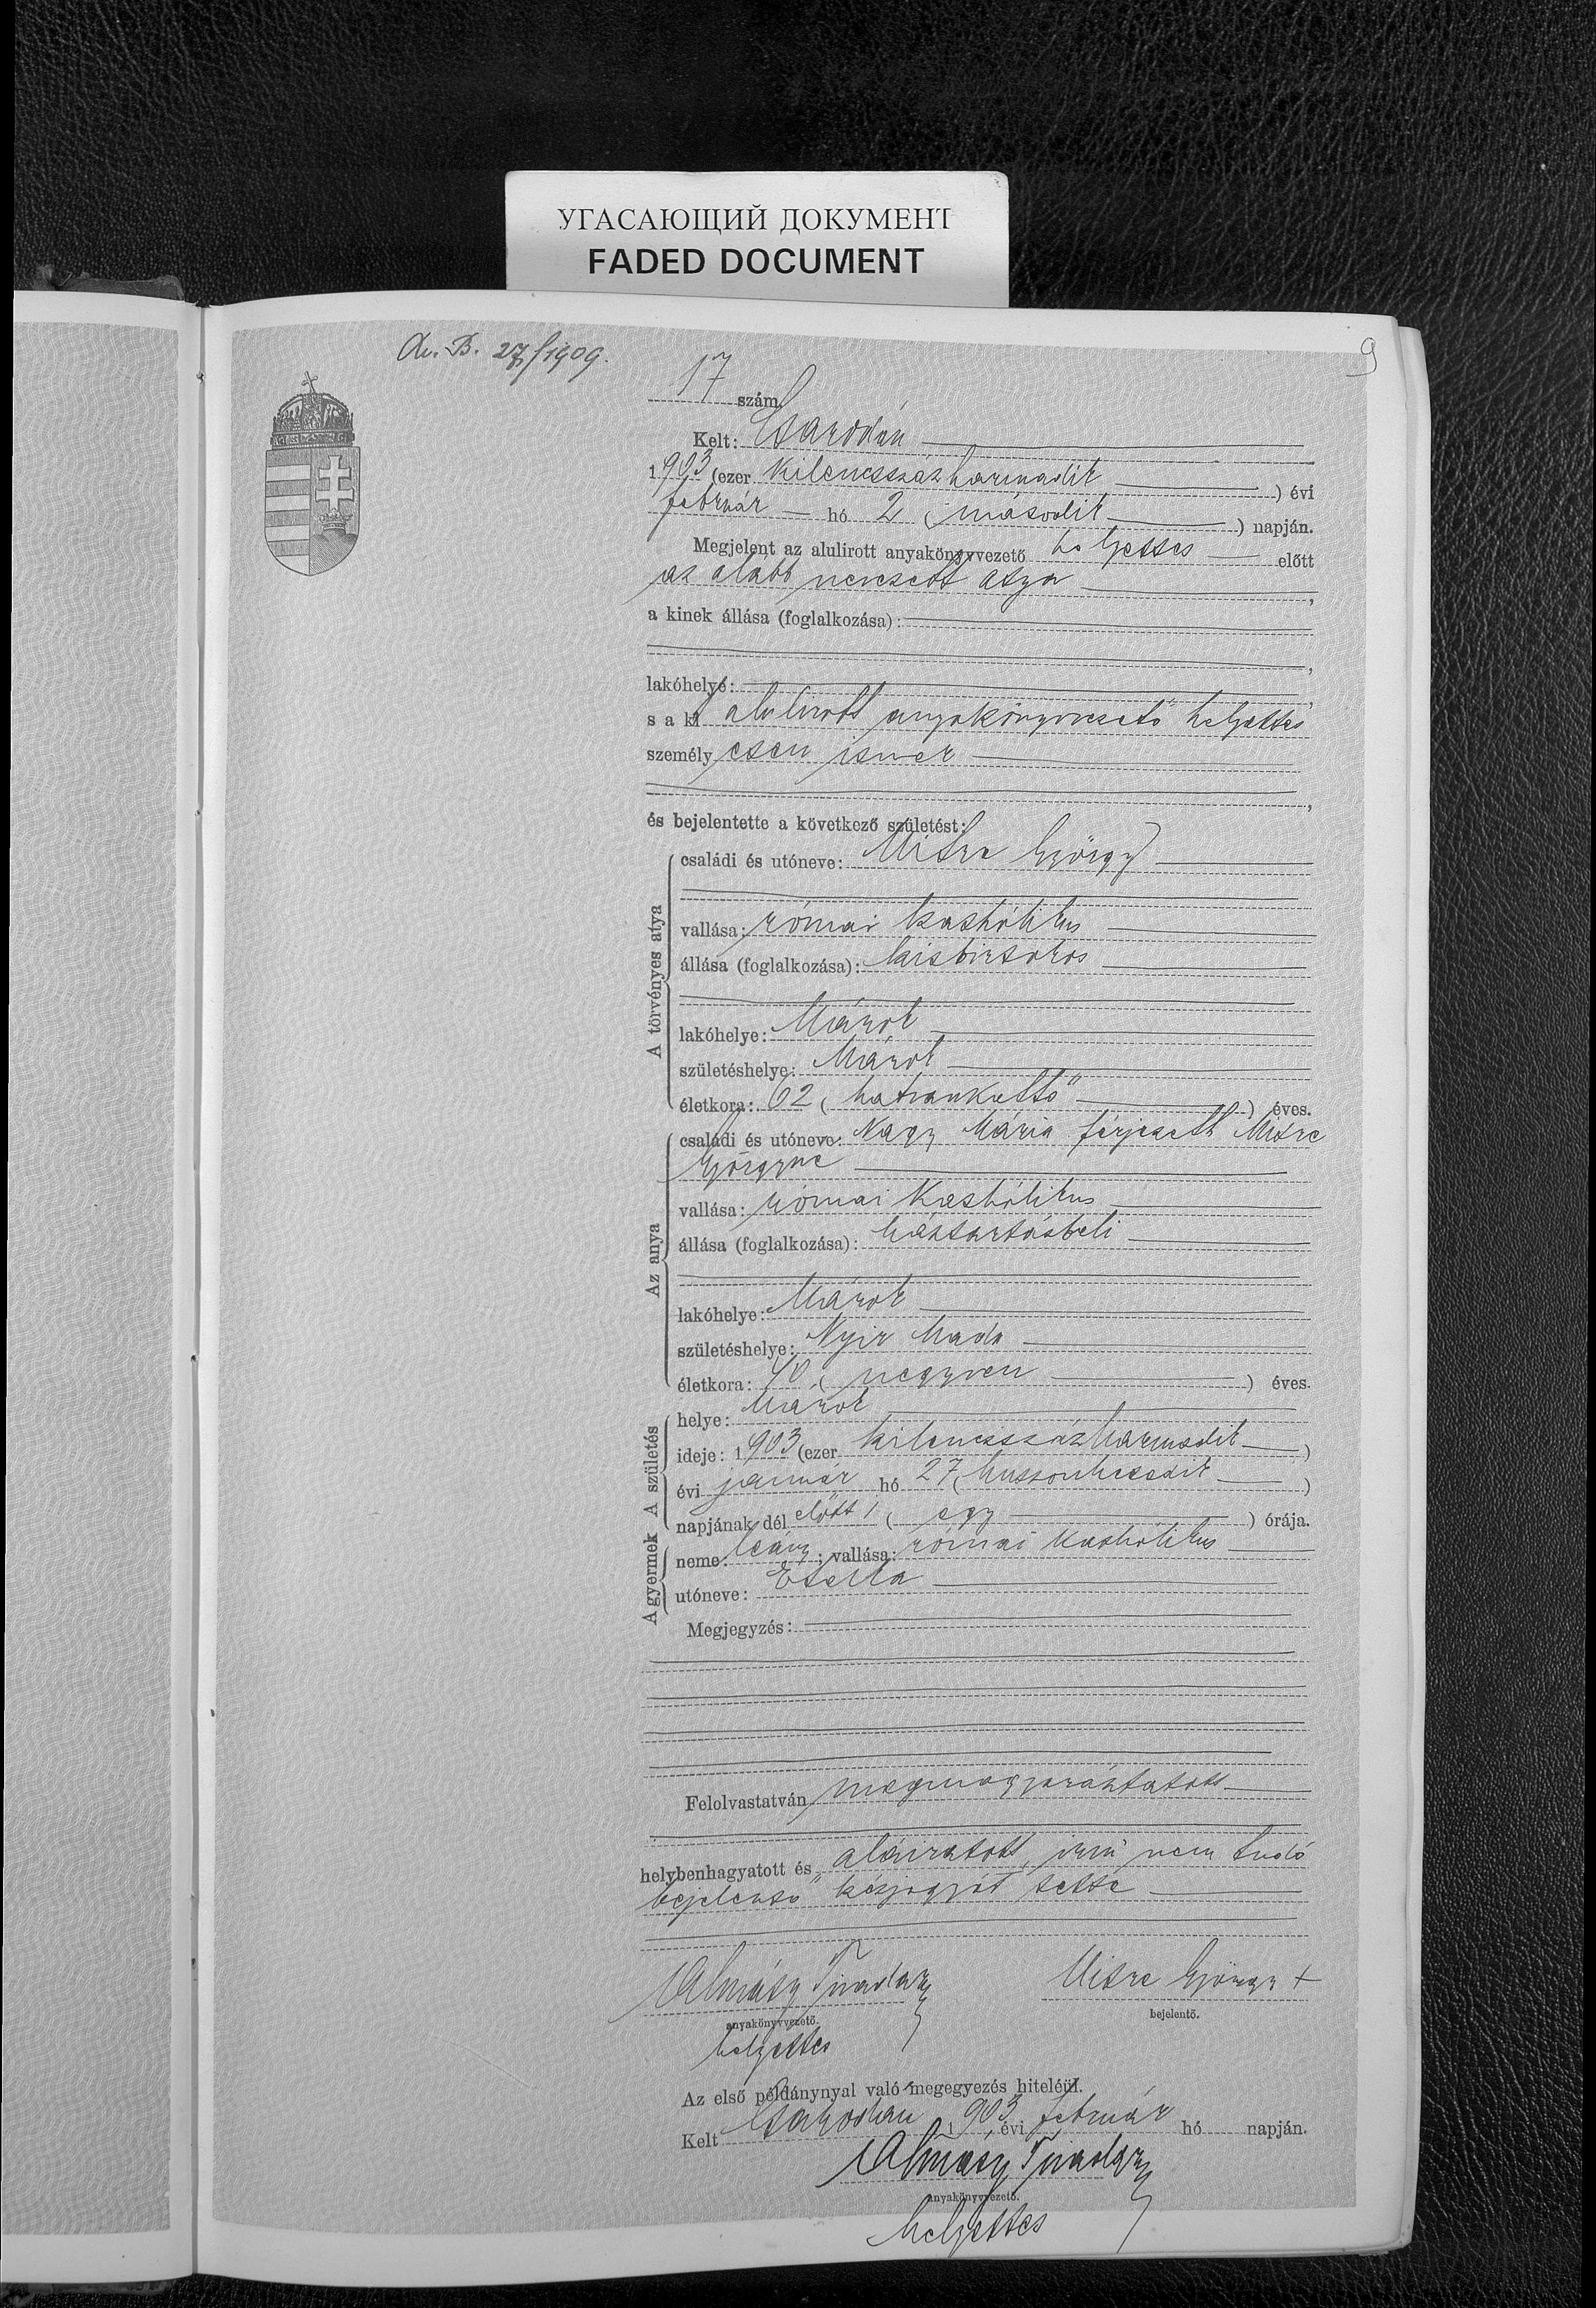 УГАСАЮЩИЙ ДОКУМЕНТ
FADED DOCUMENT
9
A. B. 27/1909.
17 szám.
Kelt: Csarodán
1903 (ezer kilencsszázharmadik ) évi
február hó 2 (második ) napján.
Megjelent az alulirott anyakönyvvezető helyettes előtt
az alább nevezett atya ,
a kinek állása (foglalkozása):
,
lakóhelye: ,
s a kit alulirott anyakönyvvezető helyettes
személyesen ismer
,
és bejelentette a következő születést:
A törvényes atya
családi és utóneve: Mitre György
vallása: római katholikus
állása (foglalkozása): kisbirtokos
lakóhelye: Márok
születéshelye: Márok
életkora: 62 (hatvankettő ) éves.
Az anya
családi és utóneve: Nagy Mária férjezett Mitre
Györgyne
vallása: római katholikus
állása (foglalkozása): háztartásbeli
lakóhelye: Márok
születéshelye: Nyir Mada
életkora: 40 (negyven ) éves.
A születés
helye: Márok
ideje: 1903 (ezer kilencsszázharmadik )
évi január hó 27 (huszonhetedik )
napjának dél előtt 1 ( egy ) órája.
A gyermek
neme: leány; vallása: római katholikus
utóneve: Etelka
Megjegyzés:
Felolvastatván megmagyaráztatott
helybenhagyatott és aláiratott, irni nem tudó
bejelentő kézjegyét tette
Almásy Tivadar Mitre György +
anyakönyvvezető. bejelentő.
helyettes
Az első példánynyal való megegyezés hiteléül.
Kelt Csarodán 1903 évi február hó napján.
Almásy Tivadar
anyakönyvvezető.
helyettes